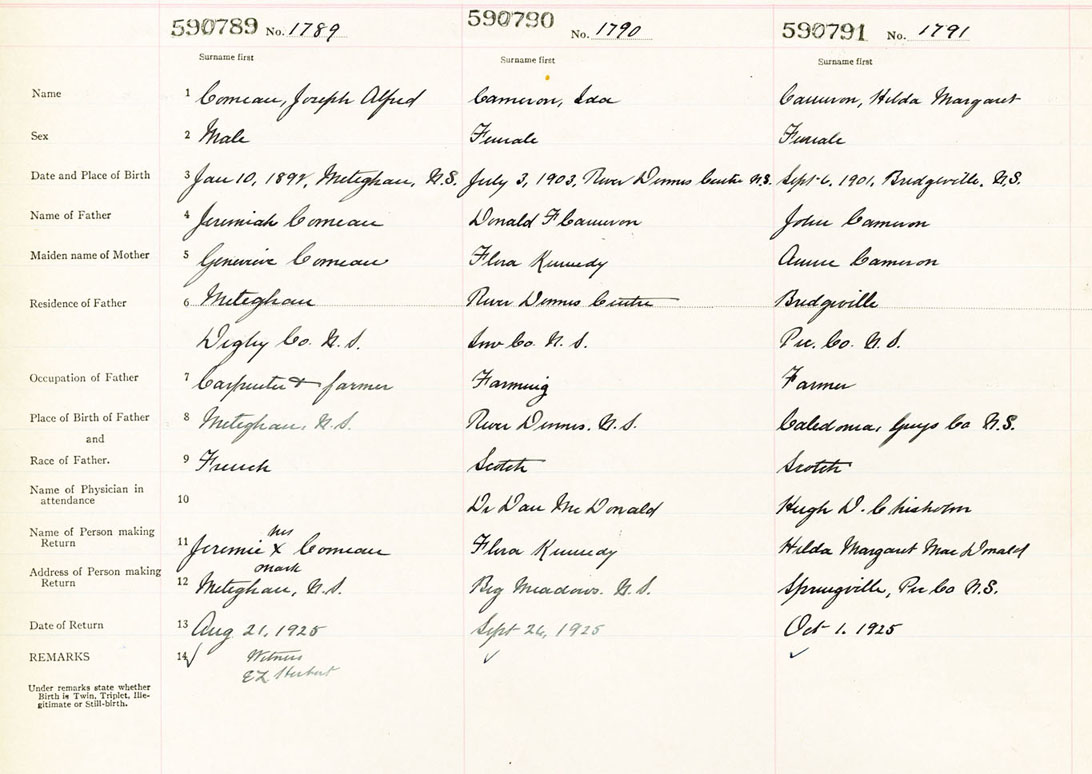 590789 No. 1789 590790 No. 1790 590791 No. 1791
Surname first Surname first Surname first
Name 1 Comeau, Joseph Alfred Cameron, Ida Cameron, Hilda Margaret
Sex 2 Male Female Female
Date and Place of Birth 3 Jan 10, Meteghan, N.S. July 3, 1903, River Dennis Centre N.S. Sept 6, 1901, Bridgeville, N.S.
Name of Father 4 Jeremiah Comeau Donald F Cameron John Cameron
Maiden name of Mother 5 Genevieve Comeau Flora Kennedy Annie Cameron
Residence of Father 6 Meteghan River Dennis Centre Bridgville
Digby Co. N.S. Inv Co. N.S. Pic. Co. N.S.
Occupation of Father 7 Carpenter & farmer Farming Farmer
Place of Birth of Father 8 Meteghan, N.S. River Dennis. N.S. Caledonia, Guys Co N.S.
and
Race of Father. 9 French Scotch Scotch
Name of Physician in
attendance 10 Dr Dan McDonald Hugh D. Chisholm
Name of Person making his
Return 11 Jeremie X Comeau Flora Kennedy Hilda Margaret MacDonald
mark
Address of Person making
Return 12 Meteghan, N.S. Big Meadows. N.S. Springville, Pic Co N.S.
Date of Return 13 Aug 21, 1925 Sept 26, 1925 Oct 1. 1925
REMARKS 14 Witness
EL Herbert
Under remarks state whether
Birth is Twin, Triplet, Ille-
gitimate or Still-birth.